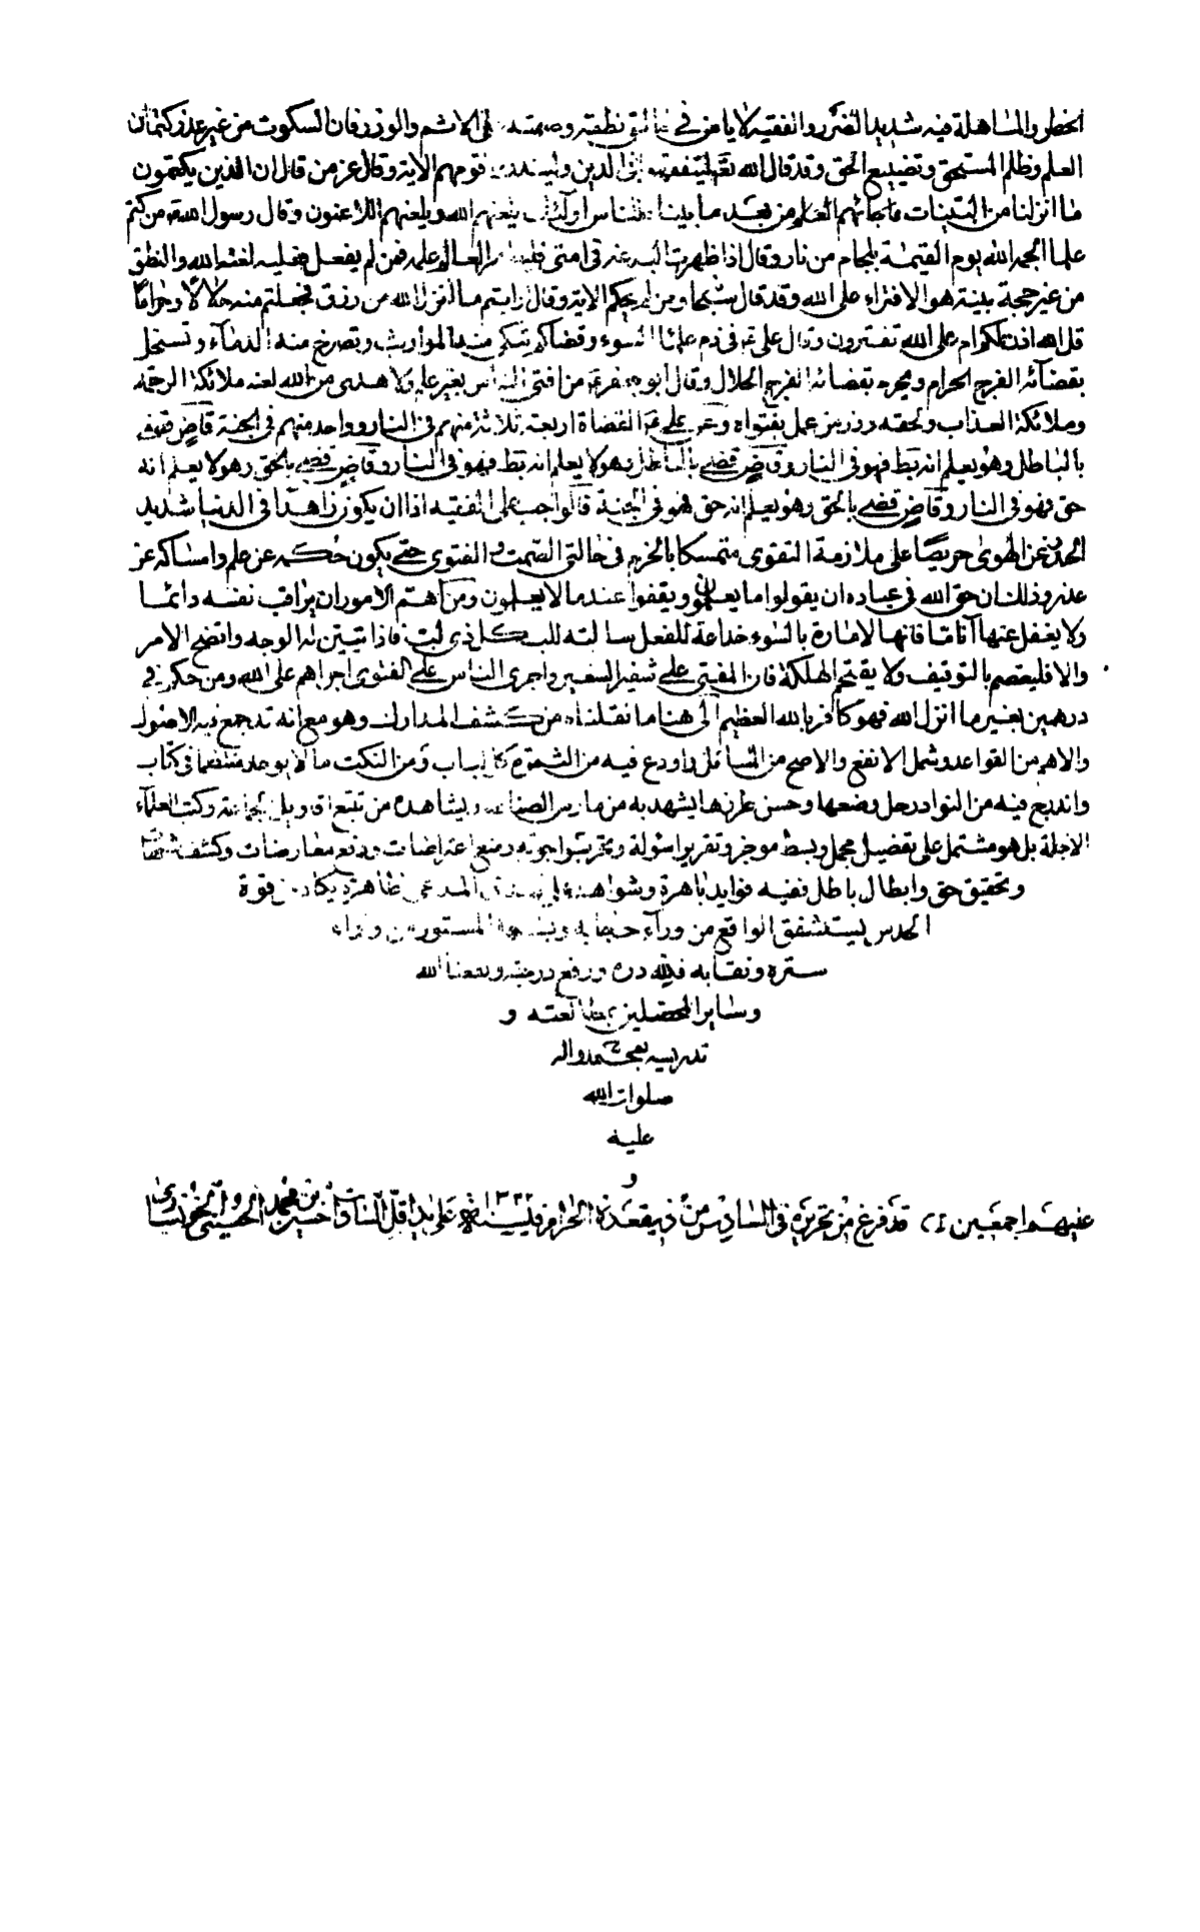 الخطر والمساهلة فيه شديد الضرر والفقيه لا يامن في حالتي نطقه وصمته من الاثم والوزر فان السكوت من غير عذر كتمان
العلم وظلم المستحق وتضييع الحق وقد قال الله تعالى ليتفقهوا في الدين ولينذروا قومهم الاية وقال عز من قال ان الذين يكتمون
ما انزلنا من البينات من بعد ما بيناه للناس اولئك يلعنهم الله ويلعنهم اللاعنون وقال رسول الله من كتم
علما الجمه الله يوم القيمة بلجام من نار وقال اذا ظهرت البدعة في امتى فليظهر العالم علمه فمن لم يفعل فعليه لعنة الله والنطق
من غير حجة بينة هو الافتراء على الله وقد قال سبحانه ومن لم يحكم الاية وقال ارايتم ما انزل الله من رزق فجعلتم منه حلالا وحراما
قل الله اذن لكم ام على الله تفترون وقال على في ذم علماء السوء وقضاتهم تبكى منه المواريث وتصرخ منه الدماء وتستحل
بقضائه الفرج الحرام ويحرم بقضائه الفرج الحلال وقال ابو جعفر من افتى الناس بغير علم ولا هدى من الله لعنه ملائكة الرحمة
وملائكة العذاب ولحقه وزر من عمل بفتواه وعن على القضاة اربعة ثلاثة منهم في النار وواحد منهم في الجنة قاض قضى
بالباطل وهو يعلم انه بط فهو في النار وقاض قضى بالباطل وهو لا يعلم انه بط فهو في النار وقاض قضى بالحق وهو لا يعلم انه
حق فهو في النار وقاض قضى بالحق وهو يعلم انه حق فهو في الجنة فالواجب على الفقيه اذا ان يكون زاهدا في الدنيا شديد
الحذر عن الهوى حريصا على ملازمة التقوى متمسكا بالحزم في حالتي الصمت والفتوى حتى يكون حكمه عن علم وامساكه عن
عذر وذلك ان حق الله في عباده ان يقولوا ما يعلمون ويقفوا عند ما لا يعلمون ومن اهم الامور ان يراقب نفسه دائما
ولا يغفل عنها اناما فانها الامارة بالسوء خداعة للفعل سالبة للب كل ذى لب فاذا تبين له الوجه واتضح الامر
والا فليعتصم بالتوقيف ولا يقتحم الهلكة فان المفتى على شفير السعير واجرى الناس على الفتوى اجراهم على الله ومن حكم في
درهمين بغير ما انزل الله فهو كافر بالله العظيم الى هنا ما نقلناه من كشف المدارك وهو مع انه قد جمع فيه الاصول
والاهم من القواعد وشمل الانفع والاصح من المسائل واودع فيه من الثمرة كل لباب ومن النكت ما لا يوجد في كتاب
واندرج فيه من النوادر حل وضعها وحسن طرزها يشهد به من مارس الصناعة ويشاهده من تتبع وكتب العلماء
الاجلة بل هو مشتمل على تفصيل مجمل وبسط موجز وتقرير اسولة وتحرير اجوبة ومنع اعتراضات ودفع معارضات وكشف شبهات
وتحقيق حق وابطال باطل ففيه فوايد باهرة وشواهد على صدق المدعى ظاهرة يكاد من قوة
الحدس يستشفق الواقع من وراء حجابه ويشاهد المستور من وراء
ستره ونقابه فلله دره ورفع درجته ونفعنا الله
وساير المحصلين بمطالعته و
تدريسه بمحمد واله
صلوات الله
عليه
و
عليهم اجمعين قد فرغ من تحريره في السادس من ذيقعدة الحرام في سنة ١٣٢٢ على يد اقل السادات حسين بن محمد الحسينى الخونسارى